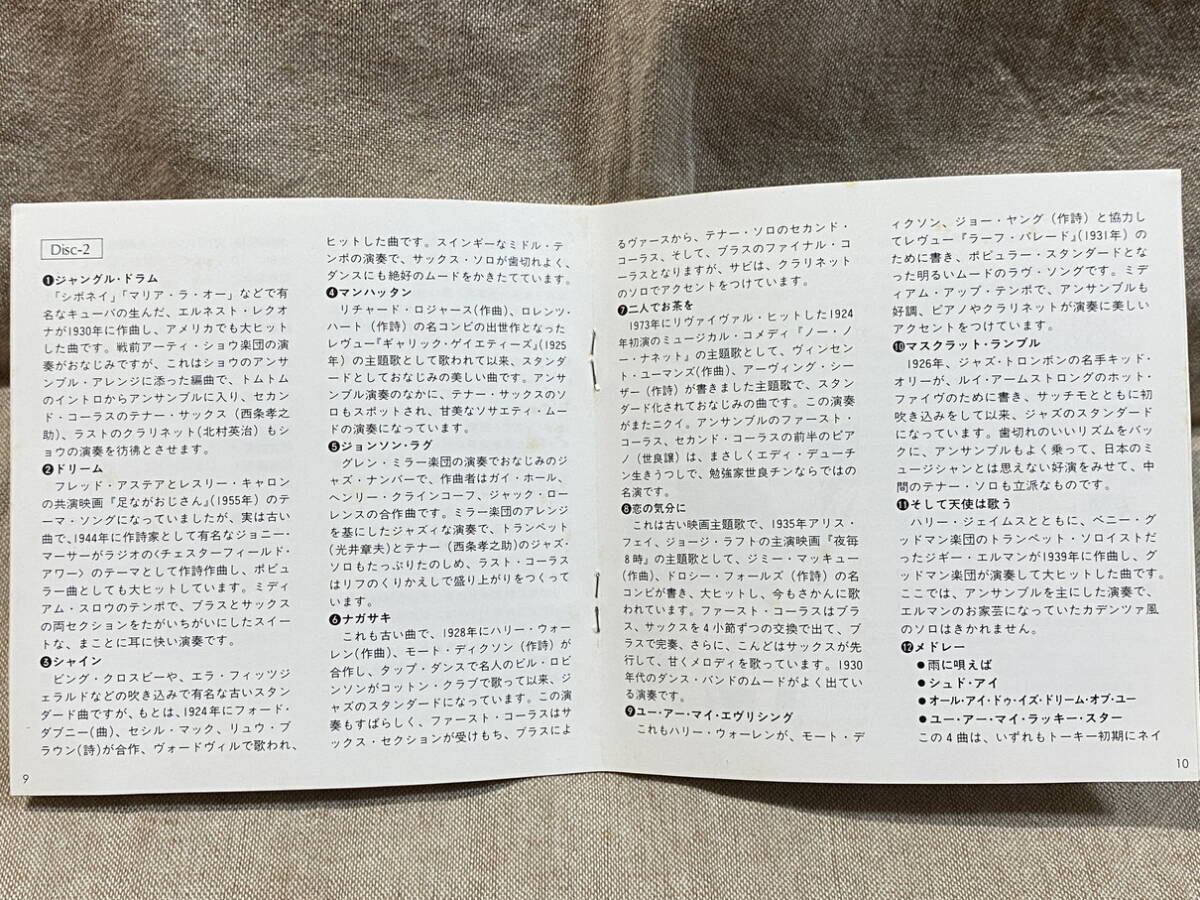 Disc-2
❶ジャングル・ドラム
「シボネイ」「マリア・ラ・オー」などで有
名なキューバの生んだ、エルネスト・レクオ
ナが1930年に作曲し、アメリカでも大ヒット
した曲です。戦前アーティ・ショウ楽団の演
奏がおなじみですが、これはショウのアンサ
ンブル・アレンジに添った編曲で、トムトム
のイントロからアンサンブルに入り、セカン
ド・コーラスのテナー・サックス(西条孝之
助)、ラストのクラリネット(北村英治)もシ
ョウの演奏を彷彿とさせます。
❷ドリーム
フレッド・アステアとレスリー・キャロン
の共演映画『足ながおじさん』(1955年)のテ
ーマ・ソングになっていましたが、実は古い
曲で、1944年に作詩家として有名なジョニー・
マーサーがラジオの〈チェスターフィールド・
アワー〉のテーマとして作詩作曲し、ポピュ
ラー曲としても大ヒットしています。ミディ
アム・スロウのテンポで、ブラスとサックス
の両セクションをたがいちがいにしたスイー
トな、まことに耳に快い演奏です。
❸シャイン
ビング・クロスビーや、エラ・フィッツジ
ェラルドなどの吹き込みで有名な古いスタン
ダード曲ですが、もとは、1924年にフォード・
ダブニー(曲)、セシル・マック、リュウ・ブ
ラウン(詩)が合作、ヴォードヴィルで歌われ、
9
ヒットした曲です。スインギーなミドル・テ
ンポの演奏で、サックス・ソロが歯切れよく、
ダンスにも絶好のムードをかきたてています。
❹マンハッタン
リチャード・ロジャース(作曲)、ロレンツ・
ハート(作詩)の名コンビの出世作となった
レヴュー『ギャリック・ゲイエティーズ』(1925
年)の主題歌として歌われて以来、スタンダ
ードとしておなじみの美しい曲です。アンサ
ンブル演奏のなかに、テナー・サックスのソ
ロもスポットされ、甘美なソサエティ・ムー
ドの演奏になっています。
❺ジョンソン・ラグ
グレン・ミラー楽団の演奏でおなじみのジ
ャズ・ナンバーで、作曲者はガイ・ホール、
ヘンリー・クラインコーフ、ジャック・ロー
レンスの合作曲です。ミラー楽団のアレンジ
を基にしたジャズィな演奏で、トランペット
(光井章夫)とテナー(西条孝之助)のジャズ・
ソロもたっぷりたのしめ、ラスト・コーラス
はリフのくりかえしで盛り上がりをつくって
います。
❻ナガサキ
これも古い曲で、1928年にハリー・ウォー
レン(作曲)、モート・ディクソン(作詩)が
合作し、タップ・ダンスで名人のビル・ロビ
ンソンがコットン・クラブで歌って以来、ジ
ャズのスタンダードになっています。この演
奏もすばらしく、ファースト・コーラスはサ
ックス・セクションが受けもち、ブラスによ
るヴァースから、テナー・ソロのセカンド・
コーラス、そして、ブラスのファイナル・コ
ーラスとなりますが、サビは、クラリネット
のソロでアクセントをつけています。
❼二人でお茶を
1973年にリヴァイヴァル・ヒットした1924
年初演のミュージカル・コメディ『ノー・ノ
ー・ナネット』の主題歌として、ヴィンセン
ト・ユーマンズ(作曲)、アーヴィング・シー
ザー(作詩)が書きました主題歌で、スタン
ダード化されておなじみの曲です。この演奏
がまたニクイ。アンサンブルのファースト・
コーラス、セカンド・コーラスの前半のピア
ノ(世良譲)は、まさしくエディ・デューチ
ン生きうつしで、勉強家世良チンならではの
名演です。
❽恋の気分に
これは古い映画主題歌で、1935年アリス・
フェイ、ジョージ・ラフトの主演映画『夜毎
8時』の主題歌として、ジミー・マッキュー
(作曲)、ドロシー・フォールズ(作詩)の名
コンビが書き、大ヒットし、今もさかんに歌
われています。ファースト・コーラスはブラ
ス、サックスを4小節ずつの交換で出て、ブ
ラスで完奏、さらに、こんどはサックスが先
行して、甘くメロディを歌っています。1930
年代のダンス・バンドのムードがよく出てい
る演奏です。
❾ユー・アー・マイ・エヴリシング
これもハリー・ウォーレンが、モート・デ
ィクソン、ジョー・ヤング(作詩)と協力し
てレヴュー『ラーフ・パレード』(1931年)の
ために書き、ポピュラー・スタンダードとな
った明るいムードのラヴ・ソングです。ミデ
ィアム・アップ・テンポで、アンサンブルも
好調、ピアノやクラリネットが演奏に美しい
アクセントをつけています。
❿マスクラット・ランブル
1926年、ジャズ・トロンボンの名手キッド・
オリーが、ルイ・アームストロングのホット・
ファイヴのために書き、サッチモとともに初
吹き込みをして以来、ジャズのスタンダード
になっています。歯切れのいいリズムをバッ
クに、アンサンブルもよく乗って、日本のミ
ュージシャンとは思えない好演をみせて、中
間のテナー・ソロも立派なものです。
⓫そして天使は歌う
ハリー・ジェイムスとともに、ベニー・グ
ッドマン楽団のトランペット・ソロイストだ
ったジギー・エルマンが1939年に作曲し、グ
ッドマン楽団が演奏して大ヒットした曲です。
ここでは、アンサンブルを主にした演奏で、
エルマンのお家芸になっていたカデンツァ風
のソロはきかれません。
⓬メドレー
●雨に唄えば
●シュド・アイ
●オール・アイ・ドゥ・イズ・ドリーム・オブ・ユー
●ユー・アー・マイ・ラッキー・スター
この4曲は、いずれもトーキー初期にネイ
10